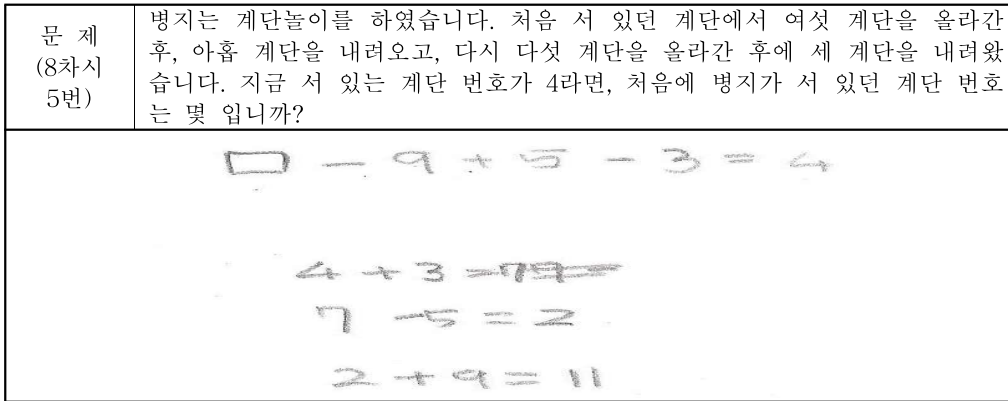 문 제
(8차시
5번)
병지는 계단놀이를 하였습니다. 처음 서 있던 계단에서 여섯 계단을 올라간
후, 아홉 계단을 내려오고, 다시 다섯 계단을 올라간 후에 세 계단을 내려왔
습니다. 지금 서 있는 계단 번호가 4라면, 처음에 병지가 서 있던 계단 번호
는 몇 입니까?
□ - 9 + 5 - 3 = 4
4 + 3 = 7
7 - 5 = 2
2 + 9 = 11